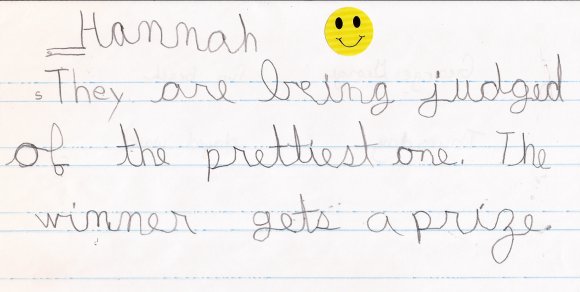 Hannah
They are being judged
of the prettiest one. The
winner gets a prize.